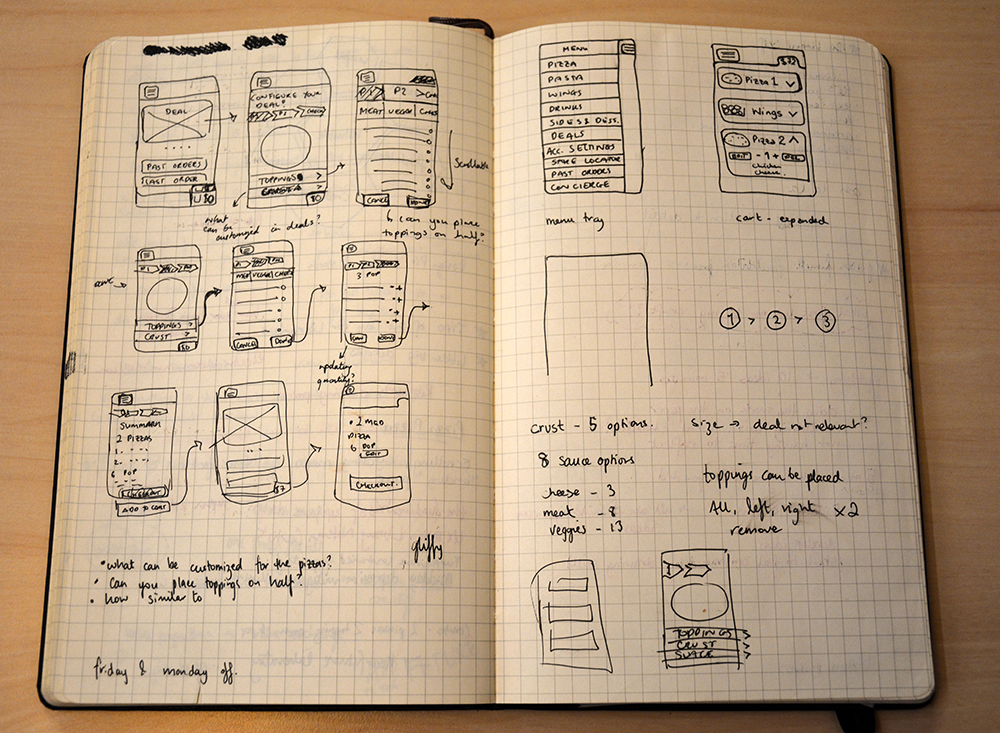 DEAL
PAST ORDERS
LAST ORDER
CONFIGURE YOUR
DEAL?
P1
TOPPINGS >
P2
MEAT VEGGIE CHEES
scrollable
CANCEL
what
can be
customized in deals?
can you place
toppings on half?
P1
TOPPINGS >
CRUST >
MEAT VEGGIE CHEESE
CANCEL DONE
3 POP
CAN DONE
updating
quantity?
SUMMARY
2 PIZZAS
1.
2.
6 POP
CHECKOUT
ADD TO CART
PIZZA
6 POP
EDIT
CHECKOUT
gliffy
• what can be customized for the pizzas?
• Can you place toppings on half?
• how similar to
friday & monday off.
MENU
PIZZA
PASTA
WINGS
DRINKS
SIDES & DESS.
DEALS
ACC. SETTINGS
STORE LOCATOR
PAST ORDERS
CONCIERGE
menu tray
Pizza 1
Wings
Pizza 2
EDIT - 1 + DEL
chicken
cheese
cart - expanded
1 > 2 > 3
crust - 5 options.
size → deal not relevant?
8 sauce options
cheese - 3
meat - 8
veggies - 13
toppings can be placed
All, left, right x2
remove
TOPPINGS >
CRUST >
SUACE >